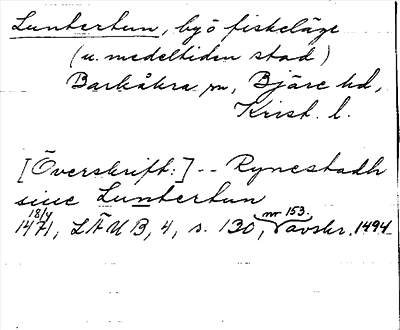 Luntertun, by ö fiskeläge
(u. medeltiden stad)
Barkåkra sn, Bjäre hd,
Krist. l.
[Överskrift:] -- Rynestadh
siue Luntertun
18/4
1471, LÄUB, 4, s. 130, nr 153. avskr. 1494